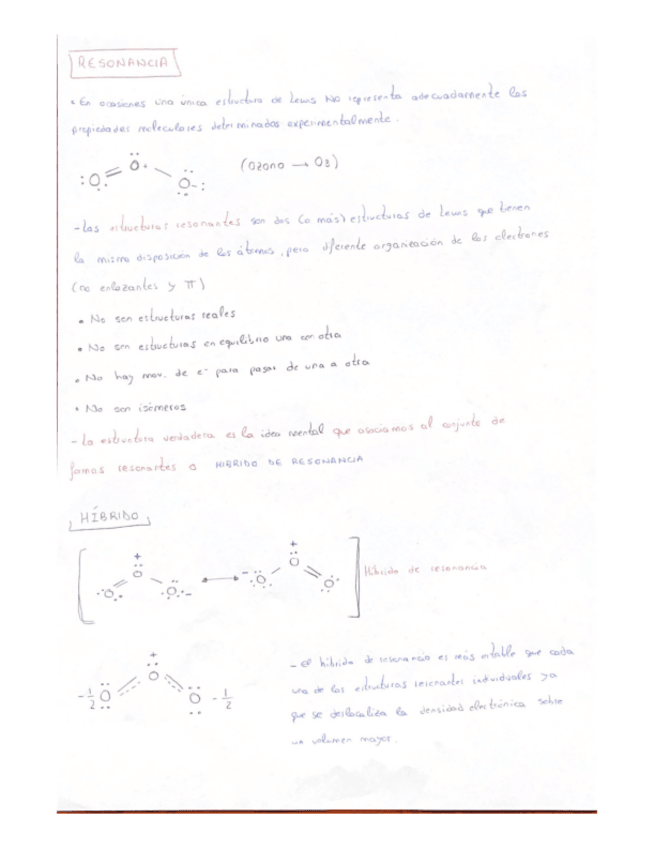 RESONANCIA
• En ocasiones una única estructura de Lewis No representa adecuadamente las
propiedades moleculares determinadas experimentalmente.
(Ozono → O3)
- Las estructuras resonantes son dos (o más) estructuras de Lewis que tienen
la misma disposición de los átomos, pero diferente organización de los electrones
(no enlazantes y π)
• No son estructuras reales
• No son estructuras en equilibrio una con otra
• No hay mov. de e- para pasar de una a otra
• No son isómeros
- La estructura verdadera es la idea mental que asociamos al conjunto de
formas resonantes o HIBRIDO DE RESONANCIA
HÍBRIDO
Híbrido de resonancia
- El híbrido de resonancia es más estable que cada
una de las estructuras resonantes individuales ya
que se deslocaliza la densidad electrónica sobre
un volumen mayor.